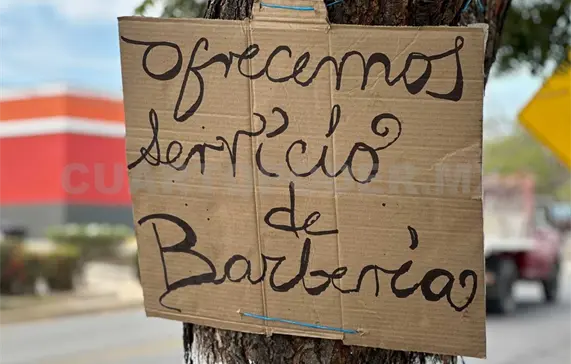 Ofrecemos
Servicio
de
Barbería